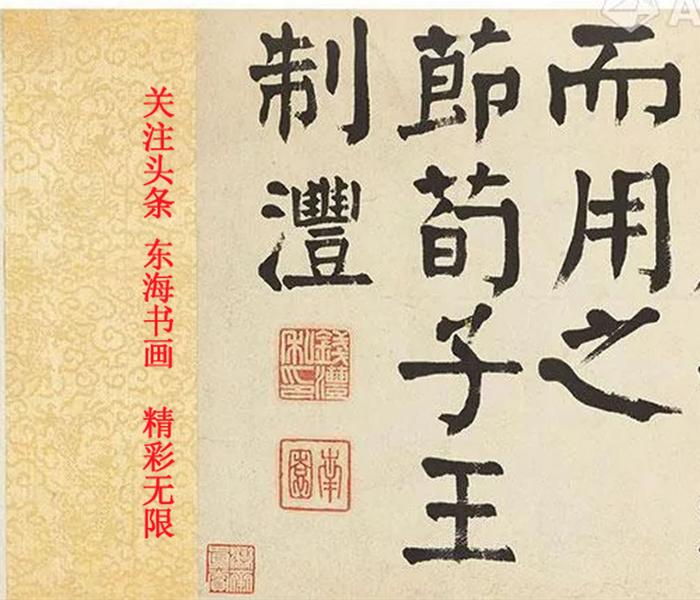 而用之
節荀子王
制灃
錢灃私印
南園
关注头条 东海书画 精彩无限